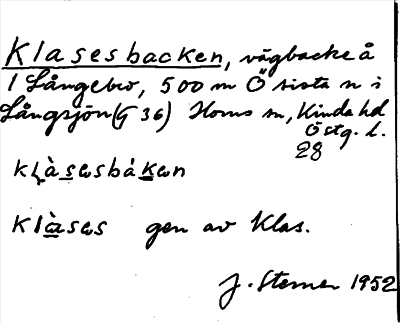 Klasesbacken, vägbacke å
1 Långebro, 500 m Ö sista n i
Långsjön (G 36) Horns sn, Kinda hd
Östg. l.
28
klàsesbáken
Klàses gen av Klas.
J. Sterner 1952